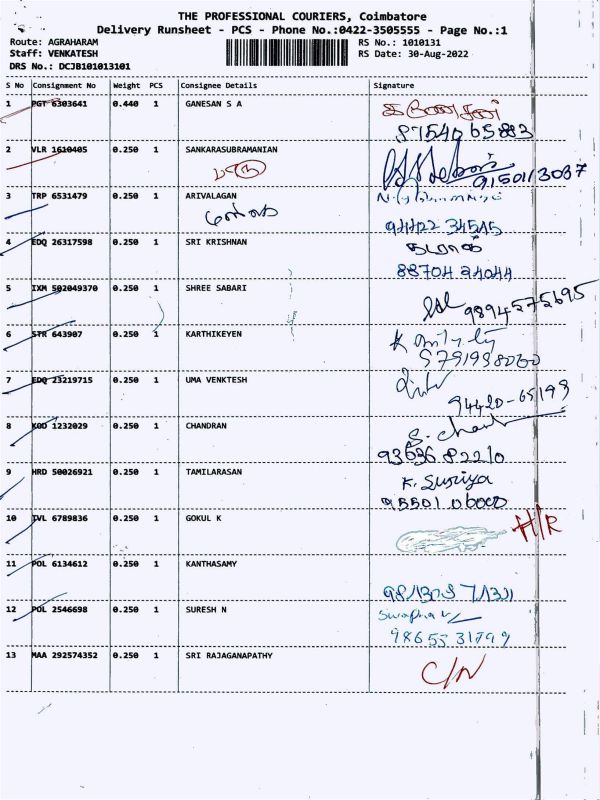 THE PROFESSIONAL COURIERS, Coimbatore
Delivery Runsheet - PCS - Phone No.:0422-3505555 - Page No.:1
Route: AGRAHARAM
Staff: VENKATESH
DRS No.: DCJB101013101
RS No.: 1010131
RS Date: 30-Aug-2022
S No Consignment No Weight PCS Consignee Details Signature
1 PGT 6303641 0.440 1 GANESAN S A
கணேசன்
2 VLR 1610405 0.250 1 SANKARASUBRAMANIAN
9150113037
3 TRP 6531479 0.250 1 ARIVALAGAN
94422 34515
4 EDQ 26317598 0.250 1 SRI KRISHNAN
88704 24044
5 IXM 502049370 0.250 1 SHREE SABARI
9894575695
6 STR 643907 0.250 1 KARTHIKEYEN
7 EDQ 23219715 0.250 1 UMA VENKTESH
94420-65199
8 KOD 1232029 0.250 1 CHANDRAN
93636 82210
9 HRD 50026921 0.250 1 TAMILARASAN
K. Suriya
95501 06000
10 TVL 6789836 0.250 1 GOKUL K
H/R
11 POL 6134612 0.250 1 KANTHASAMY
12 POL 2546698 0.250 1 SURESH N
13 MAA 292574352 0.250 1 SRI RAJAGANAPATHY
C/N